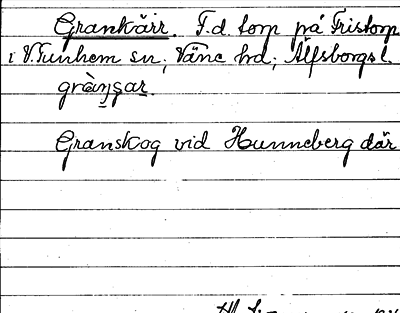 Grankärr. F.d. torp på Fristorp
i V. Tunhem sn; Väne hd; Älfsborgs l.
gràŋʂar.
Granskog vid Hunneberg där